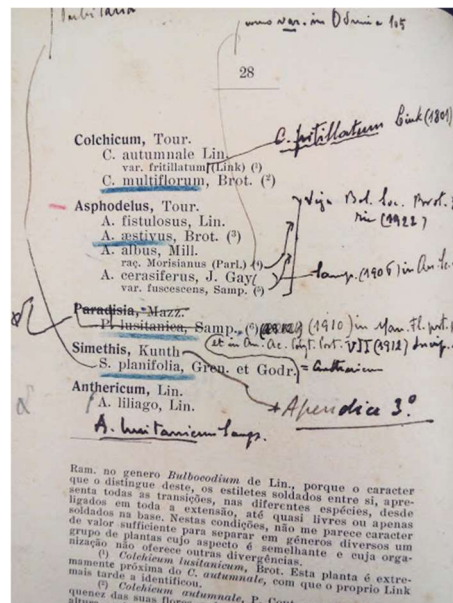 28
C. fritillatum Link (1801)
Colchicum, Tour.
C. autumnale Lin.
var. fritillatum (Link) (¹)
C. multiflorum, Brot. (²)
Asphodelus, Tour.
A. fistulosus, Lin.
A. æstivus, Brot. (³)
A. albus, Mill.
raç. Morisianus (Parl.) (⁴)
A. cerasiferus, J. Gay
var. fuscescens, Samp. (⁵)
Bol. Soc. Brot.
(1922)
Samp. (1906) in An. Sc.
Paradisia, Mazz.
P. lusitanica, Samp. (⁶) (1910) in Man. Fl. port.
et in An. Ac. Polyt. Port. VII (1912)
Simethis, Kunth
S. planifolia, Gren. et Godr. = Anthericum
Anthericum, Lin.
A. liliago, Lin.
Apendice 3º
A. lusitanicum Samp.
Ram. no genero Bulbocodium de Lin., porque o caracter
que o distingue deste, os estiletes soldados entre si, apre-
senta todas as transições, nas diferentes espécies, desde
ligados em toda a extensão, até quasi livres ou apenas
soldados na base. Nestas condições, não me parece caracter
de valor sufficiente para separar em géneros diversos um
grupo de plantas cujo aspecto é semelhante e cuja orga-
nização não oferece outras divergências.
(¹) Colchicum lusitanicum, Brot. Esta planta é extre-
mamente próxima do C. autumnale, com que o proprio Link
mais tarde a identificou.
(²) Colchicum autumnale, P. Cout.
quenez das suas flores